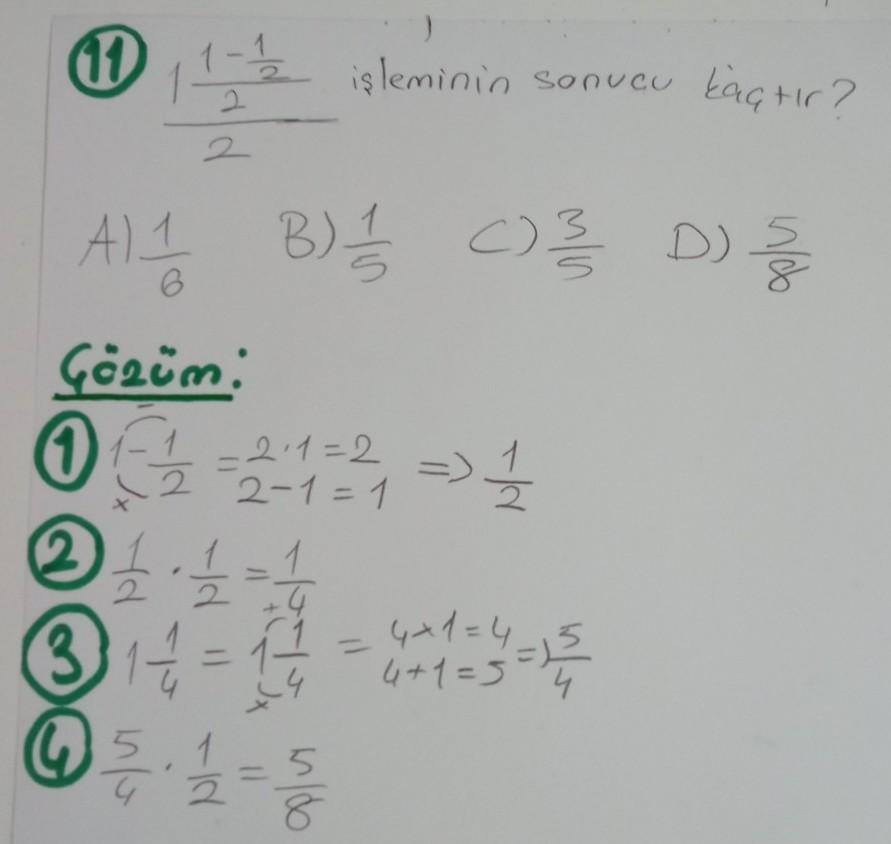 11 1 1-1/2 / 2 / 2 işleminin sonucu kaçtır?
A) 1/6 B) 1/5 C) 3/5 D) 5/8
Çözüm:
1 1-1/2 = 2·1=2 => 1/2
x 2-1=1
2 1/2 · 1/2 = 1/4
3 1 1/4 = 1 + 1/4 x = 4x1=4 => 5/4
4+1=5
4 5/4 · 1/2 = 5/8